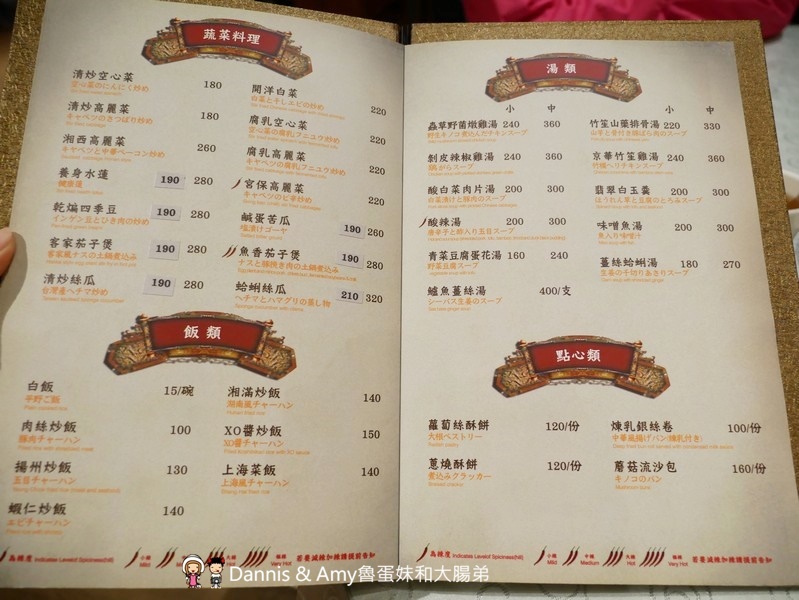 蔬菜料理
清炒空心菜 180
空心菜のにんにく炒め
清炒高麗菜 180
キャベツのさっぱり炒め
湘西高麗菜 260
キャベツと中華ベーコン炒め
養身水蓮 190 280
乾煸四季豆 190 280
インゲン豆とひき肉の炒め
客家茄子煲 190 280
客家風ナスの土鍋煮込み
清炒絲瓜 190 280
台湾産ヘチマ炒め
開洋白菜 220
白菜と干しエビの炒め
腐乳空心菜 220
空心菜の腐乳フニュウ炒め
腐乳高麗菜 220
キャベツの腐乳フニュウ炒め
宮保高麗菜 220
キャベツのピ辛炒め
鹹蛋苦瓜 190 260
塩漬けゴーヤ
魚香茄子煲 190 280
ナスと豚挽き肉の土鍋煮込み
蛤蜊絲瓜 210 320
ヘチマとハマグリの蒸し物
飯類
白飯 15/碗
平野ご飯
肉絲炒飯 100
豚肉チャーハン
揚州炒飯 130
五目チャーハン
蝦仁炒飯 140
エビチャーハン
湘滿炒飯 140
湖南風チャーハン
XO醬炒飯 150
XO醬チャーハン
上海菜飯 140
上海風チャーハン
為辣度 Indicates Levelof Spiciness(hill)
小辣 Mild
大辣 Hot
Very Hot
若要減辣加辣請提前告知
湯類
小 中
蟲草野菌燉雞湯 240 360
野生キノコ煮込んだチキンスープ
剝皮辣椒雞湯 240 360
鶏がらスープ
酸白菜肉片湯 200 300
白菜漬けと豚肉のスープ
酸辣湯 200 300
唐辛子と酢入り五目スープ
青菜豆腐蛋花湯 160 240
野菜豆腐スープ
鱸魚薑絲湯 400/支
シーバス生姜のスープ
小 中
竹笙山藥排骨湯 220 330
山芋と骨付き豚ばら肉のスープ
京華竹笙雞湯 240 360
竹燈へりチキンスープ
翡翠白玉羹 200 300
ほうれん草と豆腐のとろみスープ
味噌魚湯 200 300
魚入り味噌汁
薑絲蛤蜊湯 180 270
生姜の千切りあさりスープ
點心類
蘿蔔絲酥餅 120/份
大根ペストリー
蔥燒酥餅 120/份
煮込みクラッカー
煉乳銀絲卷 100/份
中華風揚げパン(煉乳付き)
蘑菇流沙包 160/份
キノコのパン
為辣度 Indicates Levelof Spiciness(hill)
小辣 Mild
中辣 Medium
大辣 Hot
Very Hot
若要減辣加辣請提前告知
Dannis & Amy魯蛋妹和大腸弟